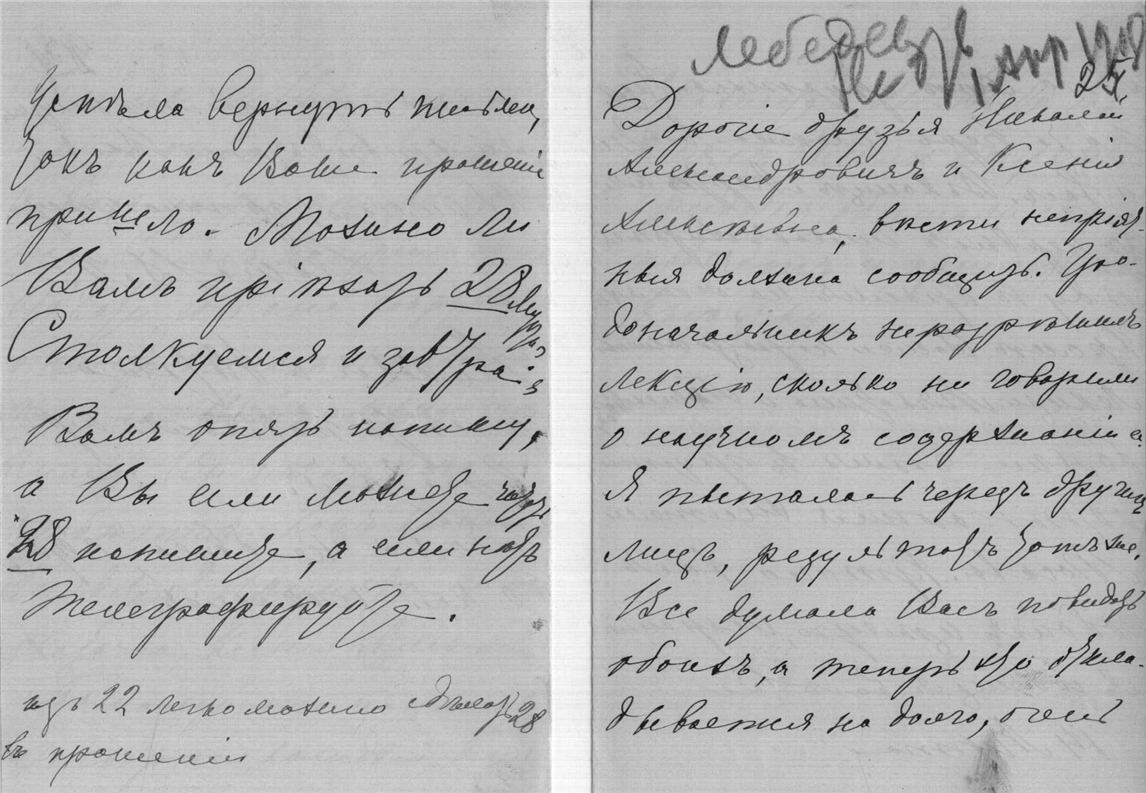 успѣла вернуть
такъ какъ Ваше прошеніе
пришло. Можно ли
Вамъ пріѣхать 28
Столкуемся и завтра
Вамъ опять напишу,
а Вы если можете
28 напишите, а если нѣтъ
телеграфируйте.
изъ 22 легко можно сдѣлать 28
въ прошеніи
Лебедев
25
Дорогіе друзья Николай
Александровичъ и Ксенія
Алексѣевна, вѣсти непріят-
ныя должна сообщить. Гра-
доначальникъ неразрѣшилъ
лекцію, сколько ни говорили
о научномъ содержаніи ея.
Я пыталась черезъ другихъ
лицъ, результатъ тотъ же.
Все думала Васъ повидать
обоихъ, а теперь это откла-
дывается на долго, очень